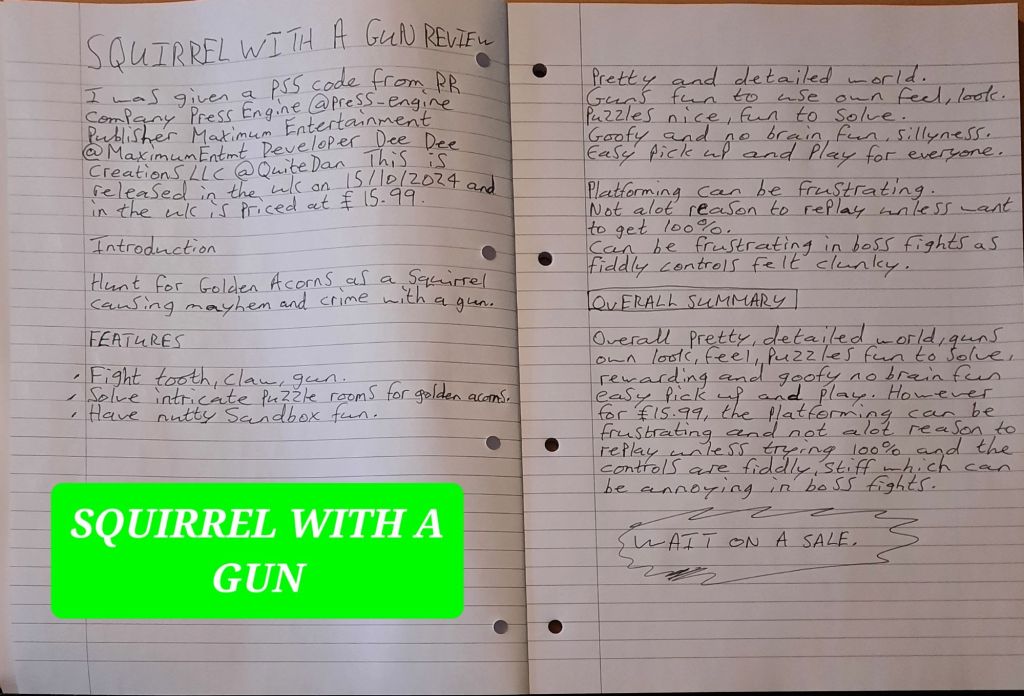 SQUIRREL WITH A GUN REVIEW
I was given a PS5 code from PR
Company Press Engine @Press_engine
Publisher Maximum Entertainment
@MaximumEntmt Developer Dee Dee
Creations LLC @QuiteDan This is
released in the uk on 15/10/2024 and
in the uk is priced at £15.99.
Introduction
Hunt for Golden Acorns as a Squirrel
causing mayhem and crime with a gun.
FEATURES
• Fight tooth, claw, gun.
• Solve intricate puzzle rooms for golden acorns.
• Have nutty Sandbox fun.
SQUIRREL WITH A
GUN
Pretty and detailed world.
Guns fun to use own feel, look.
Puzzles nice, fun to solve.
Goofy and no brain fun, sillyness.
Easy pick up and play for everyone.
Platforming can be frustrating.
Not alot reason to replay unless want
to get 100%.
Can be frustrating in boss fights as
fiddly controls felt clunky.
OVERALL SUMMARY
Overall pretty, detailed world, guns
own look, feel, puzzles fun to solve,
rewarding and goofy no brain fun
easy pick up and play. However
for £15.99, the platforming can be
frustrating and not alot reason to
replay unless trying 100% and the
controls are fiddly, stiff which can
be annoying in boss fights.
WAIT ON A SALE.